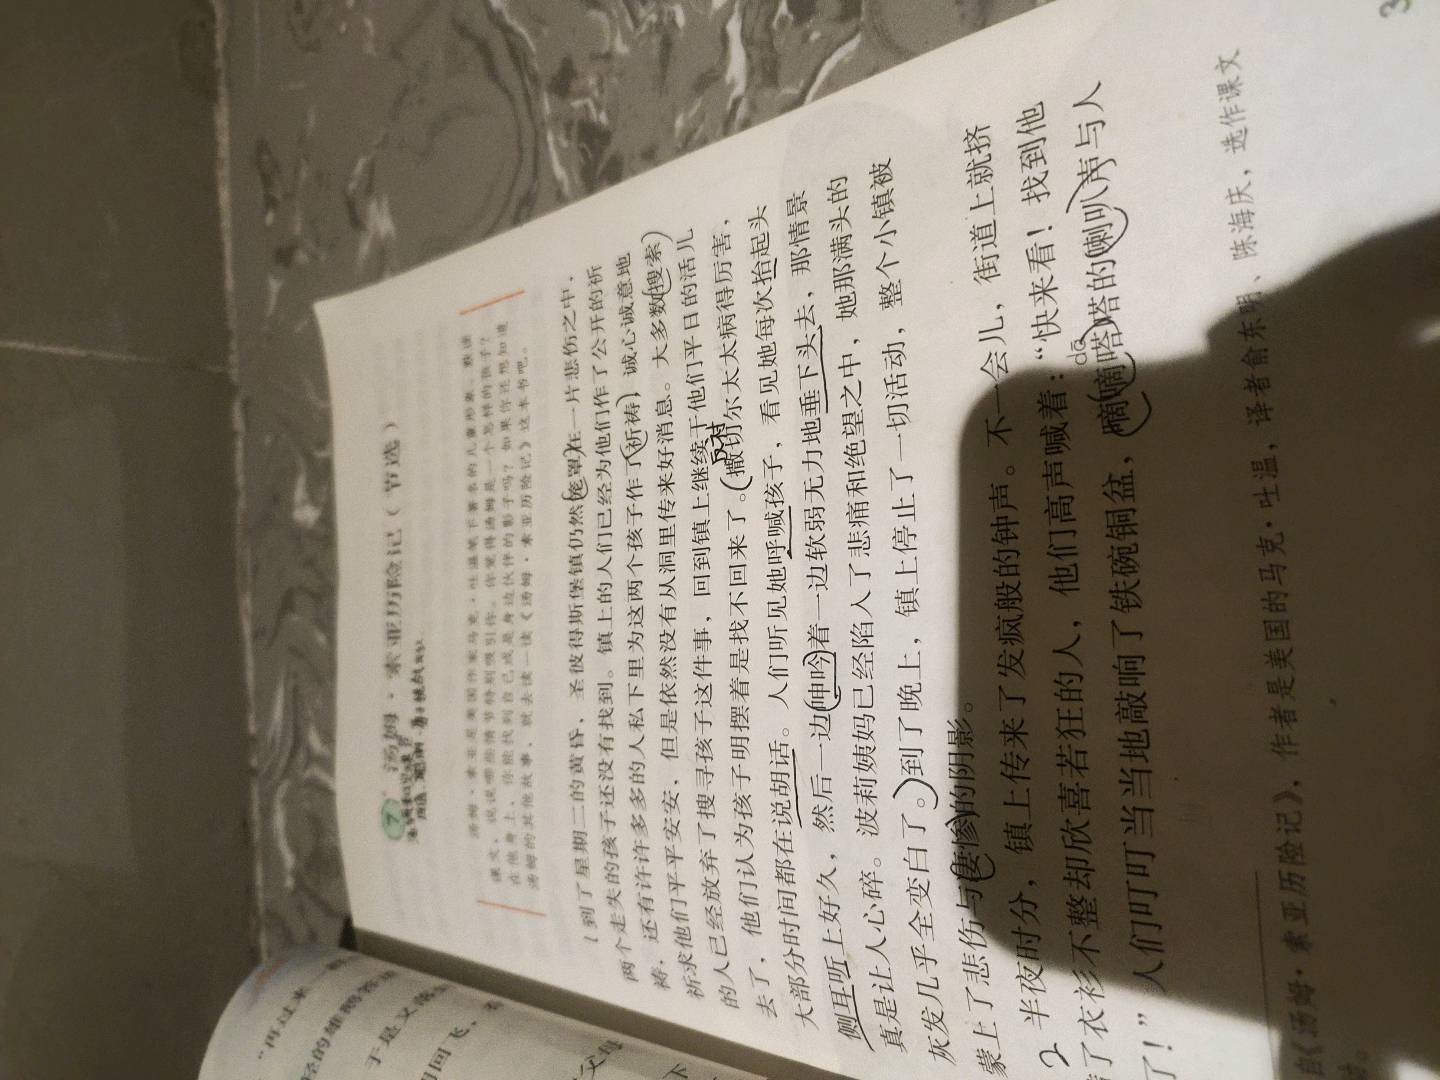 7 汤姆·索亚历险记（节选）
汤姆·索亚是美国作家马克·吐温笔下著名的儿童形象。默读
课文，说说哪些情节特别吸引你。你觉得汤姆是一个怎样的孩子？
在他身上，你能找到自己或是身边伙伴的影子吗？如果你还想知道
汤姆的其他故事，就去读一读《汤姆·索亚历险记》这本书吧。
到了星期二的黄昏，圣彼得斯堡镇仍然笼罩在一片悲伤之中，
两个走失的孩子还没有找到。镇上的人们已经为他们作了公开的祈
祷，还有许许多多的人私下里为这两个孩子作了祈祷，诚心诚意地
祈求他们平平安安，但是依然没有从洞里传来好消息。大多数搜索
的人已经放弃了搜寻孩子这件事，回到镇上继续干他们平日的活儿
去了，他们认为孩子明摆着是找不回来了。撒切尔太太病得厉害，
大部分时间都在说胡话。人们听见她呼喊孩子，看见她每次抬起头
侧耳听上好久，然后一边呻吟着一边软弱无力地垂下头去，那情景
真是让人心碎。波莉姨妈已经陷入了悲痛和绝望之中，她那满头的
灰发几乎全变白了。到了晚上，镇上停止了一切活动，整个小镇被
蒙上了悲伤与凄惨的阴影。
2 半夜时分，镇上传来了发疯般的钟声。不一会儿，街道上就挤
了衣衫不整却欣喜若狂的人，他们高声喊着：“快来看！找到他
了！”人们叮叮当当地敲响了铁碗铜盆，嘀嘀嗒嗒的喇叭声与人
dā
自《汤姆·索亚历险记》，作者是美国的马克·吐温，译者俞东明、陈海庆，选作课文
“再过来
于是又
回飞，
父母
下
3